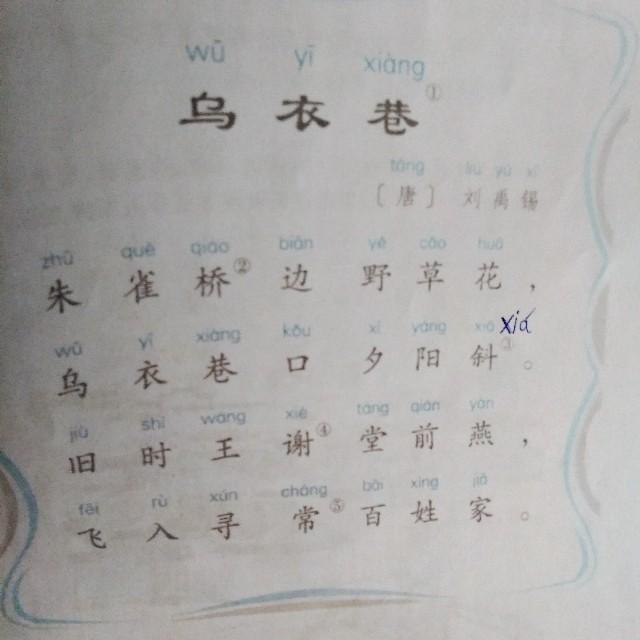 wū yī xiàng
乌衣巷①
táng liú yǔ xī
〔唐〕刘禹锡
zhū què qiáo biān yě cǎo huā
朱雀桥②边野草花，
wū yī xiàng kǒu xī yáng xiá
乌衣巷口夕阳斜③。
jiù shí wáng xiè táng qián yàn
旧时王谢④堂前燕，
fēi rù xún cháng bǎi xìng jiā
飞入寻常⑤百姓家。